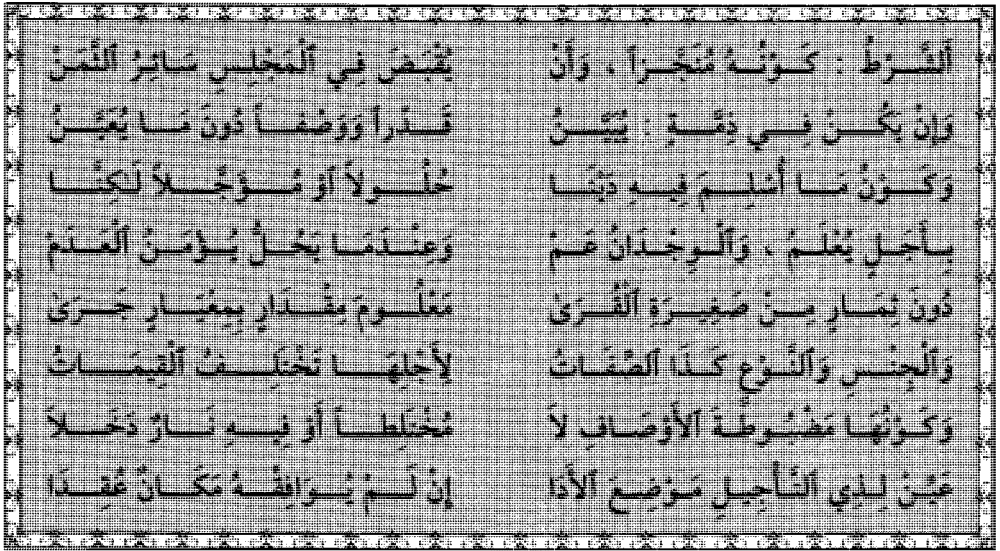 اَلشَّرْطُ : كَوْنُهُ مُنَجَّزاً ، وَأَنْ يُقْبَضَ فِي ٱلْمَجْلِسِ سَائِرُ ٱلثَّمَنْ
وَإِنْ يَكُنْ فِي ذِمَّةٍ : يُبَيَّنُ قَدْراً وَوَصْفاً دُونَ مَا يُعَيَّنُ
وَكَوْنُ مَا أُسْلِمَ فِيهِ دَيْنَا حُلُولاً أَوْ مُؤَجَّلاً لَكِنَّا
بِأَجَلٍ يُعْلَمُ ، وَٱلْوِجْدَانُ عَمْ وَعِنْدَمَا يَحُلُّ يُؤْمَنُ ٱلْعَدَمْ
دُونَ ثِمَارٍ مِنْ صَغِيرَةِ ٱلْقُرَىٰ مَعْلُومَ مِقْدَارٍ بِمِعْيَارٍ جَرَىٰ
وَٱلْجِنْسِ وَٱلنَّوْعِ كَذَا ٱلصِّفَاتُ لِأَجْلِهَا تَخْتَلِفُ ٱلْقِيمَاتُ
وَكَوْنُهَا مَضْبُوطَةَ ٱلأَوْصَافِ لاَ مُخْتَلِطاً أَوْ فِيهِ نَارٌ دَخَلاَ
عَيِّنْ لِذِي ٱلتَّأْجِيلِ مَوْضِعَ ٱلأَدَا إِنْ لَمْ يُوَافِقْهُ مَكَانٌ عُقِدَا